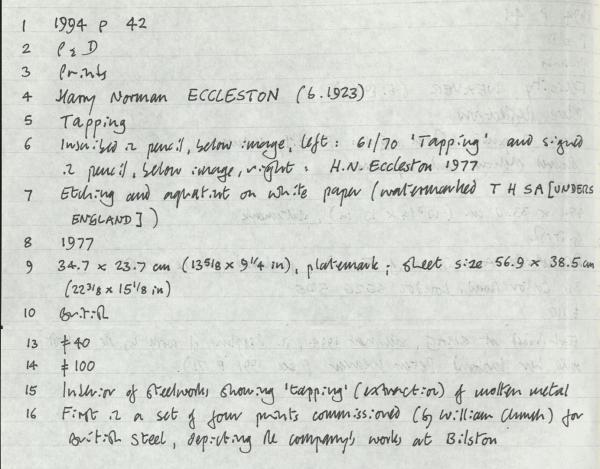 1 1994 P 42
2 P & D
3 Prints
4 Harry Norman ECCLESTON (b.1923)
5 Tapping
6 Inscribed in pencil, below image, left: 61/70 'Tapping' and signed
in pencil, below image, right: H.N. Eccleston 1977
7 Etching and aquatint on white paper (watermarked T H SA[UNDERS
ENGLAND])
8 1977
9 34.7 x 23.7 cm (13 5/8 x 9 1/4 in), platemark; sheet size 56.9 x 38.5 cm
(22 3/8 x 15 1/8 in)
10 British
13 £40
14 £100
15 Interior of steelworks showing 'tapping' (extraction) of molten metal
16 First in a set of four prints commissioned (by William) for
British Steel, depicting the company's works at Bilston